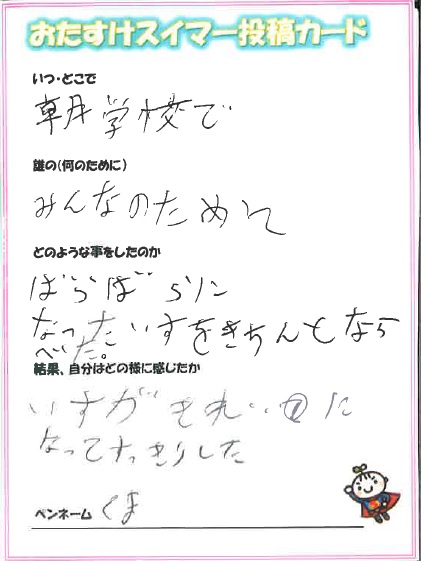 おたすけスイマー投稿カード
いつ・どこで
朝学校で
誰の(何のために)
みんなのために
どのような事をしたのか
ばらばらに
なったいすをきちんとなら
べた。
結果、自分はどの様に感じたか
いすがきれいに
なってすっきりした
ペンネーム くま